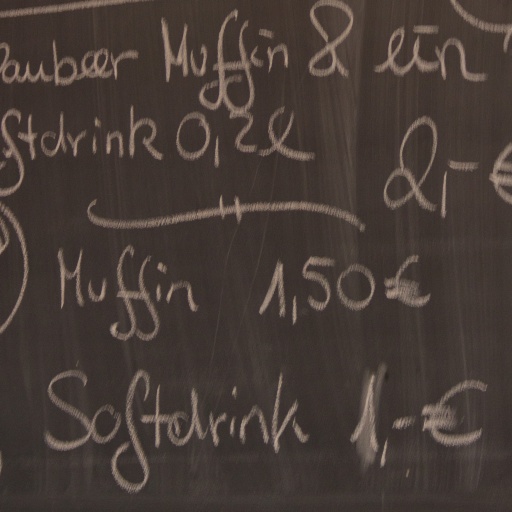 Muffin & ein
Softdrink 0,2l 2,- €
Muffin 1,50 €
Softdrink 1,- €